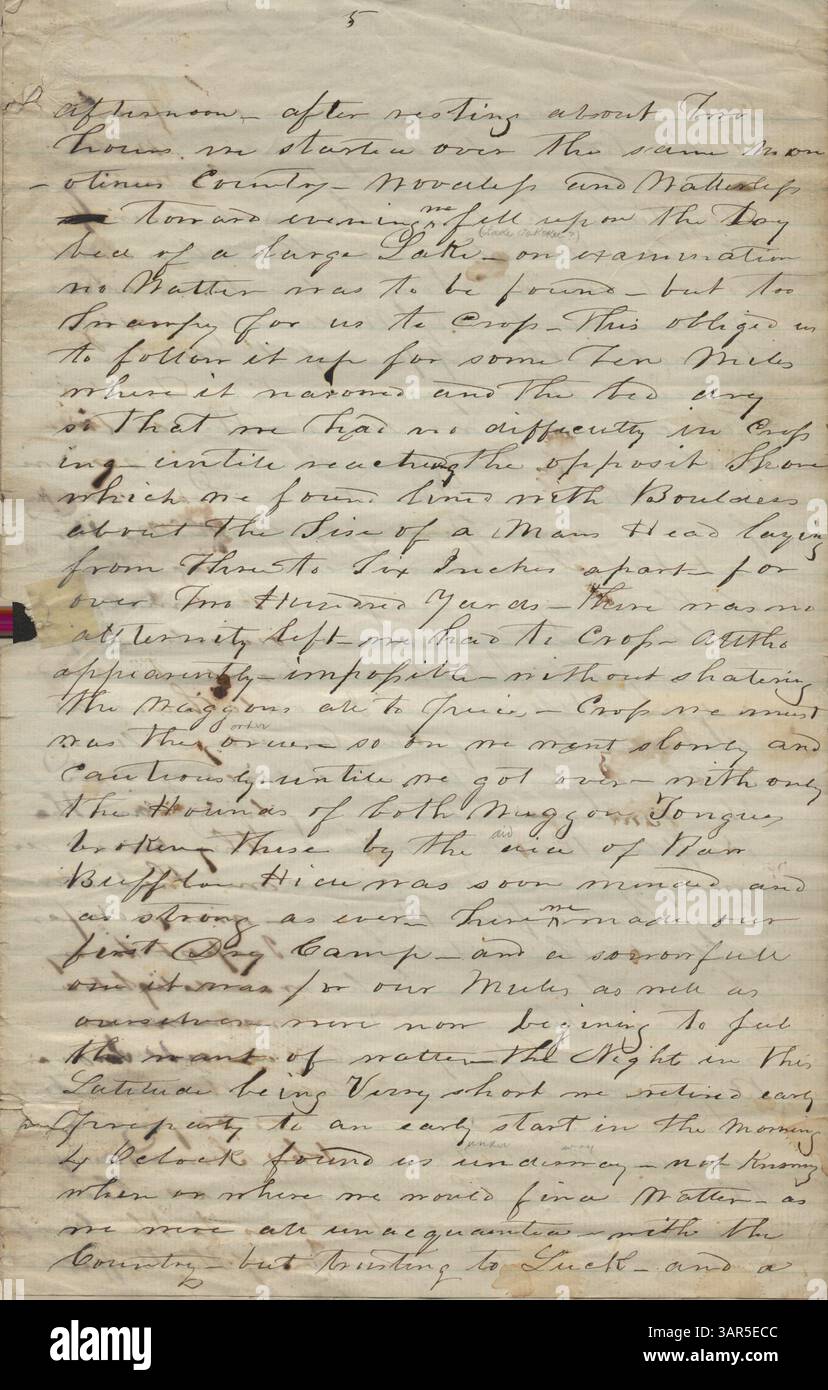 5
afternoon - after resting about Two
hours we started over the same Mon
- otinus Country - Woodless and Watterless
toward evening we fell upon the Dry
bed of a large Lake - on examination
no Watter was to be found - but too
Swampy for us to Cross - this obliged us
to follow it up for some Ten Miles
where it narowed and the bed dry
so that we had no difficulty in Cross
ing - untile reaching the opposit Shore
which we found lined with Boulders
about the Sise of a Mans Head laying
from Three to Six Inches apart - for
over Two Hundred Yards - there was no
alternity left - we had to Cross - altho
appearently - impossible - without shatering
the Waggons all to Juice - Cross we must
order
was the order - so on we went slowly and
cautiously untile we got over - with only
the Hounds of both Waggon Tongues
aid
broken - these by the aid of Raw
Bufflow Hide was soon mended and
as strong as ever - here we made our
first Dry Camp - and a sorrowfull
one it was for our Mules as well as
ourselves were now begining to feel
the want of watter - the Night in this
Latitude being Verry short we retired early
Preparty to an early start in the Morning
under away
4 Oclock found us underway - not Knowing
when or where we would find Watter - as
we were all unacquainted - with the
Country - but trusting to Luck - and a
alamy
Image ID: 3AR5ECC
www.alamy.com